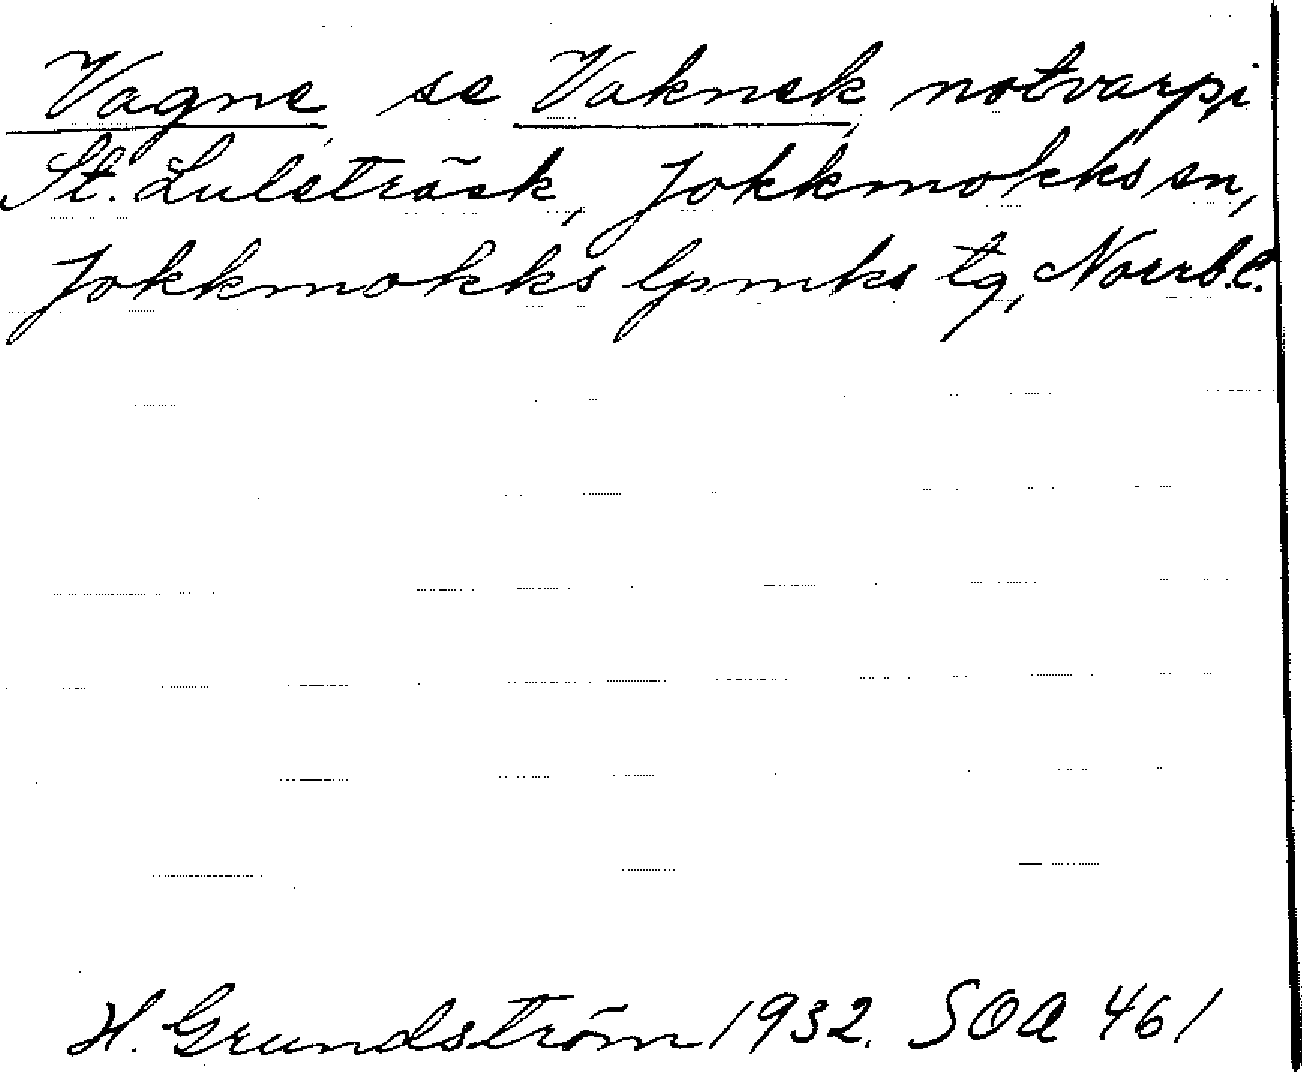 Vagne se Vaknek notvarp i
St. Luleträsk, Jokkmokks sn,
Jokkmokks lpmks tg, Norrb. l.
H. Grundström 1932. SOA 461